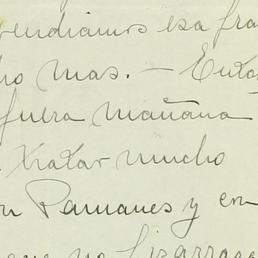 vendiamos esa fra
ho mas. — Enton
fuera mañana
tratar mucho
Pamanes y con
que no Lizarrag